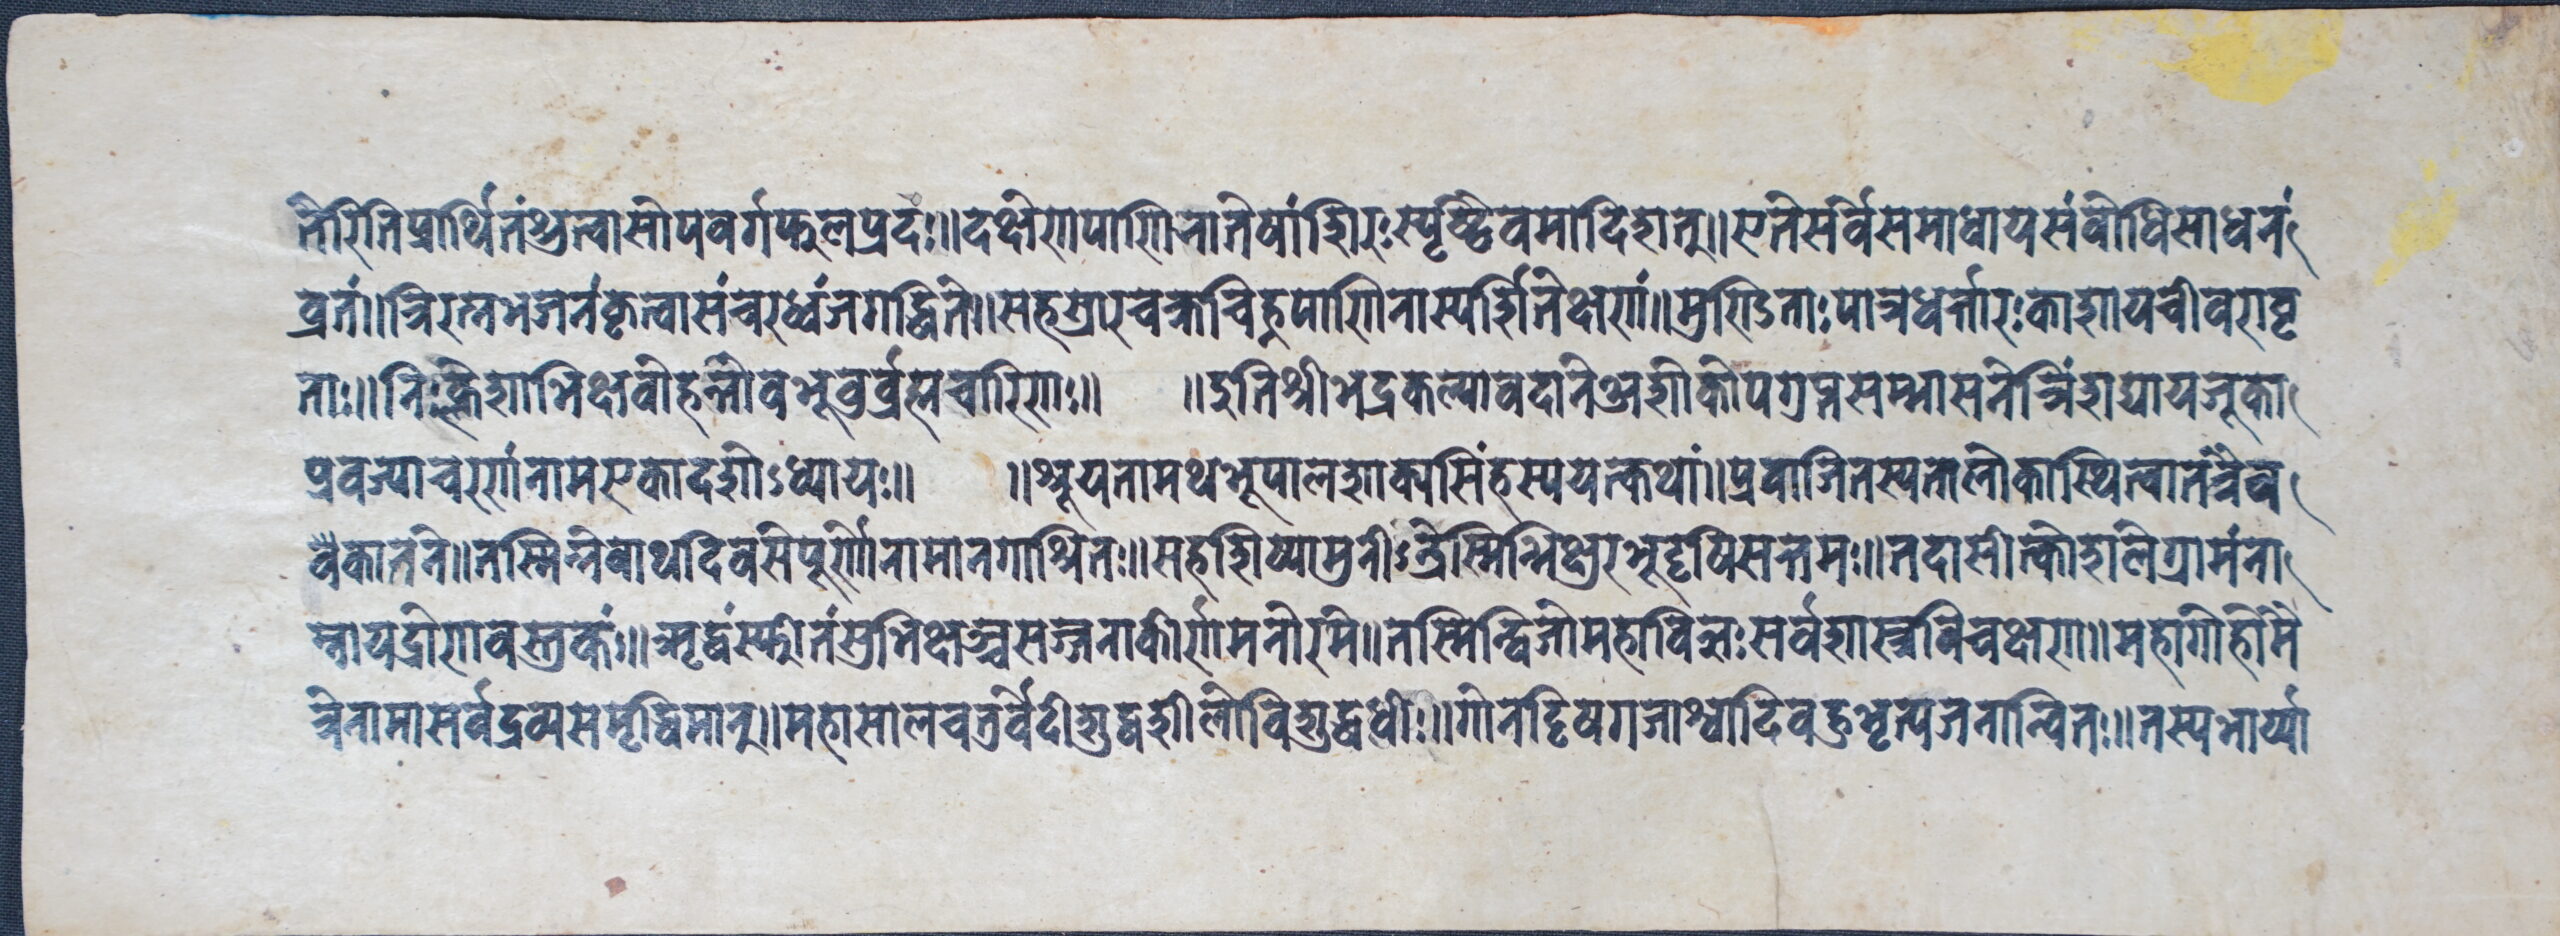 तैरिति प्रार्थितं श्रुत्वा सोपवर्गफलप्रदः॥ दक्षेण पाणिना तेषां शिरः स्पृष्ट्वैवमादिशत्॥ एतैः सर्वे समाधाय संबोधिसाधनं
व्रतं॥ त्रिरत्नभजनं कृत्वा संचरध्वं जगद्धिते॥ सहस्रारचक्रचिह्नपाणिना स्पर्शितेक्षणां॥ मुण्डिताः पात्रधर्त्तारः काशायचीवरावृ
ताः॥ निःक्लेशा भिक्षवोर्हन्तो बभूवुर्ब्रह्मचारिणः॥ ॥ इति श्रीभद्रकल्पावदाने अशोकोपगुप्तसम्भासने त्रिंशद्यायजूका
प्रवज्याचरणं नाम एकादशोऽध्यायः॥ ॥ श्रूयतामथ भूपाल शाक्यसिंहस्य यत्कथां॥ प्रवाजितस्य ताल्लोकास्थित्वा तत्रैव
चैकानने॥ तस्मिन्नेवाथ दिवसे पूर्णो नामानगाश्रितः॥ सहशिष्या मुनीन्द्रेस्मिन्भिक्षुरभूदृषिसत्तमः॥ तदासीत्कोशले ग्रामं ना
म्नाय द्रोणवस्तुकं॥ ऋद्धं स्फीतं सुभिक्षञ्च सज्जनाकीर्णमनोरमे॥ तस्मिन्द्विजो महाविज्ञः सर्वशास्त्रविचक्षण॥ महागोहो मै
त्रेनामा सर्वद्रव्यसमृद्धिमान्॥ महासालचतुर्वेदी शुद्धशीलो विशुद्धधीः॥ गोनद्विषगजाश्वादिबहुभृत्यजनान्वितः॥ तस्य भार्य्या